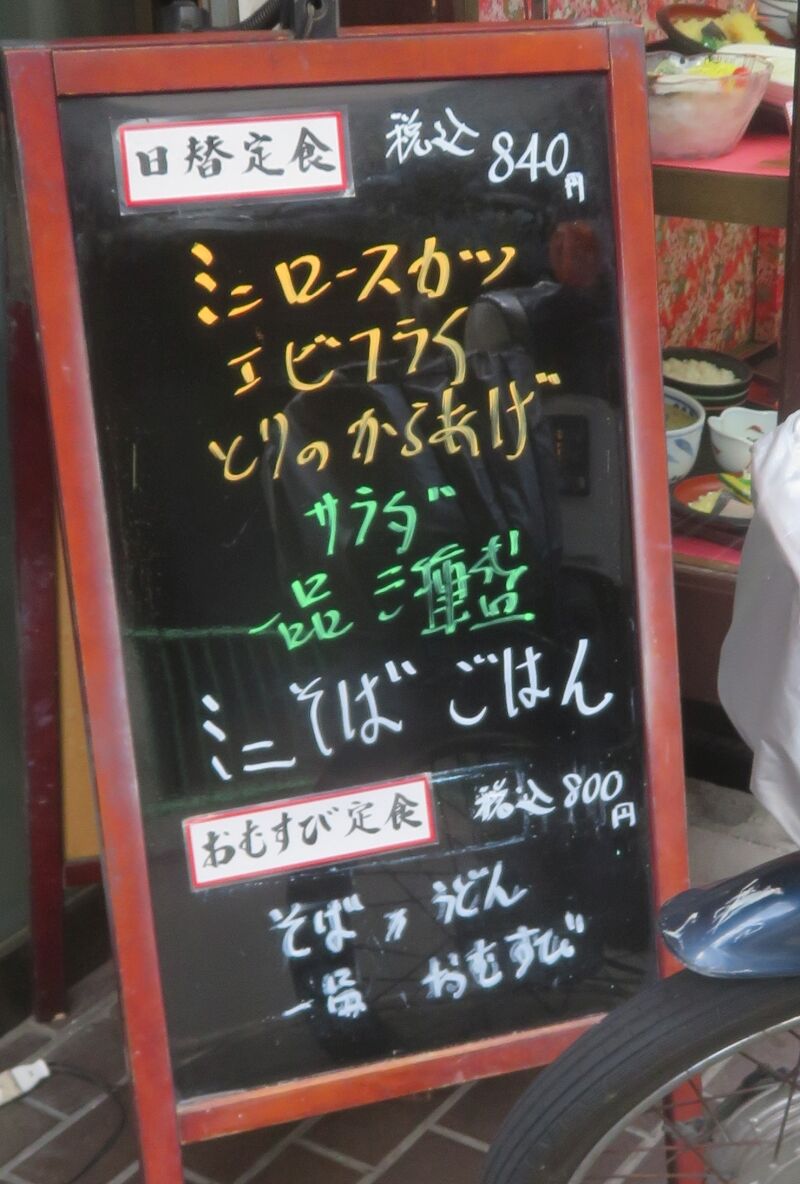 日替定食 税込 840円
ミニロースカツ
エビフライ
とりのからあげ
サラダ
一品
ミニそば ごはん
おむすび定食 税込 800円
そば うどん
一品 おむすび